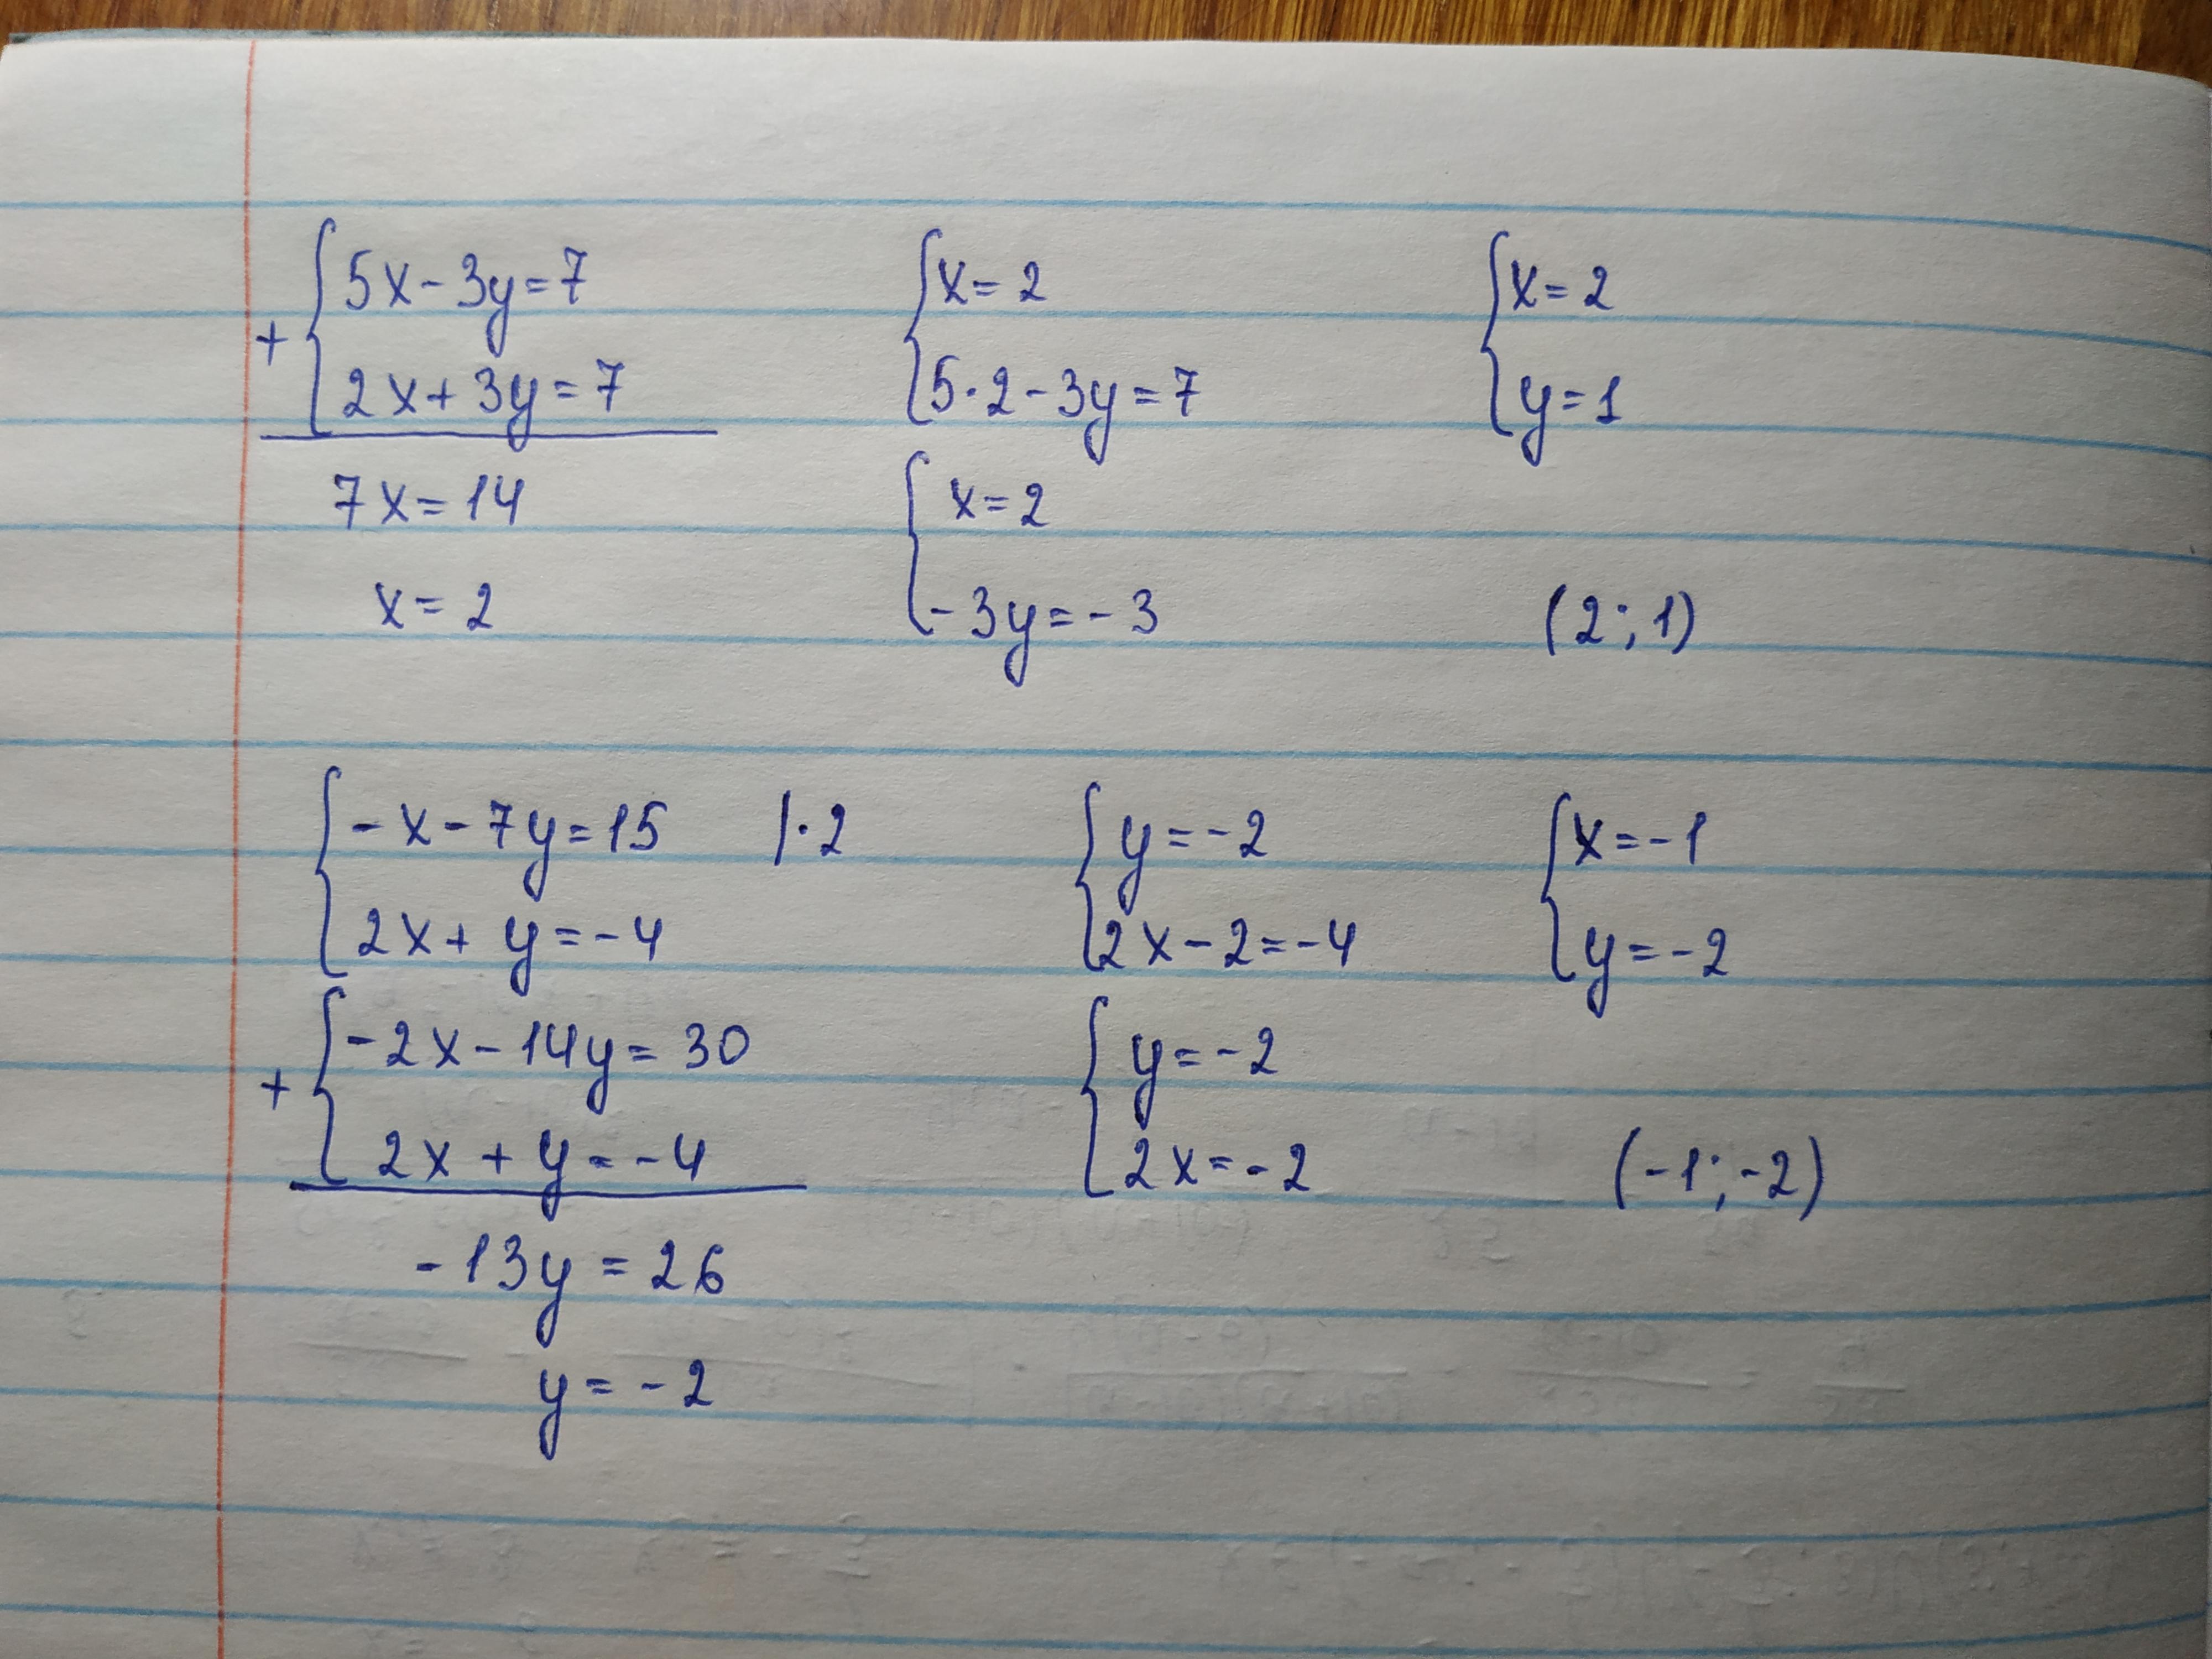 5x-3y=7
+
2x+3y=7
7x=14
x=2
x=2
5·2-3y=7
x=2
-3y=-3
x=2
y=1
(2;1)
-x-7y=15 |·2
2x+y=-4
-2x-14y=30
+
2x+y=-4
-13y=26
y=-2
y=-2
2x-2=-4
y=-2
2x=-2
x=-1
y=-2
(-1;-2)